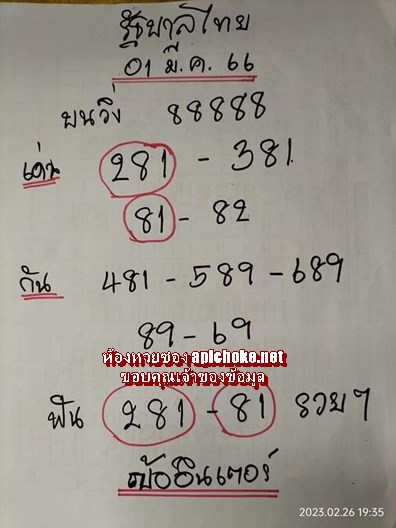 รัฐบาลไทย
01 มี.ค. 66
บนวิ่ง 88888
เด่น 281 - 381
81 - 82
กัน 481 - 589 - 689
89 - 69
ห้องหวยซอง apichoke.net
ขอบคุณเจ้าของข้อมูล
ฟัน 281 - 81 รวยๆ
อินเตอร์
2023.02.26 19:35